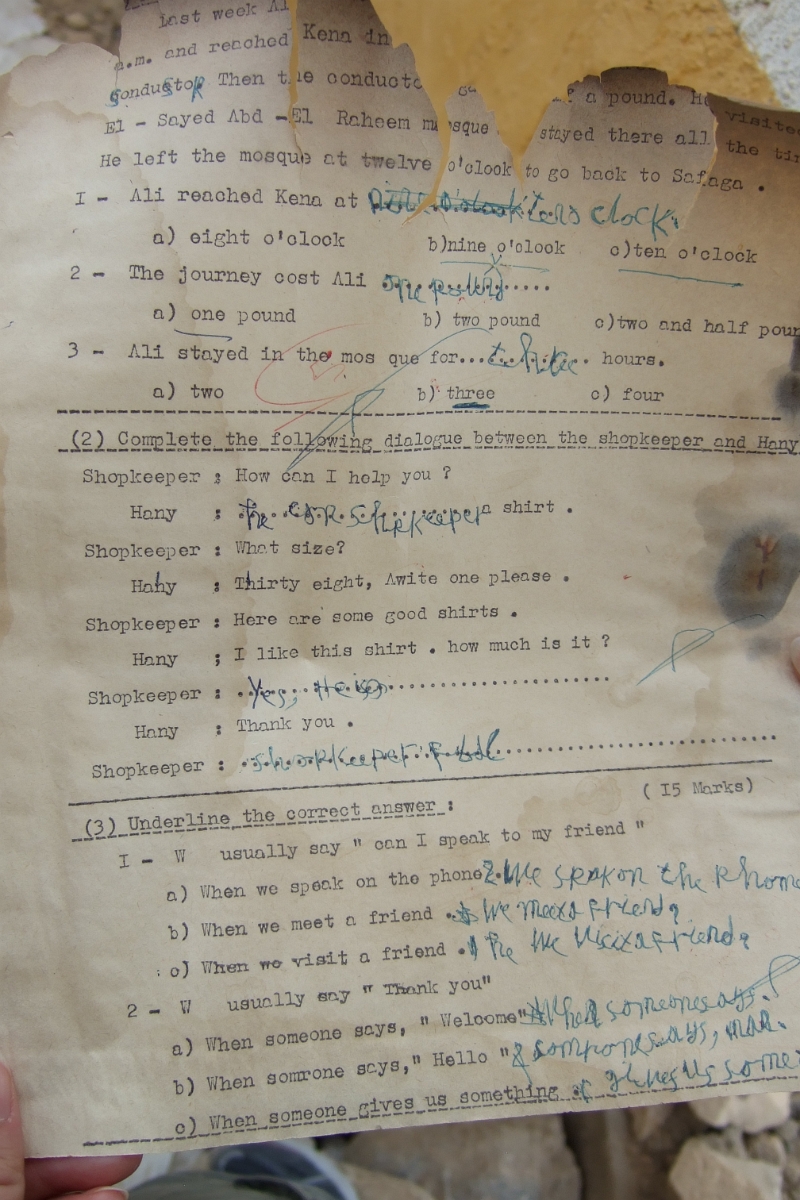 Last week Al
a.m. and reached Kena in
conductor Then the conducto a pound. He visited
El - Sayed Abd -El Raheem mosque stayed there all the tim
He left the mosque at twelve o'clock to go back to Safaga .
I - Ali reached Kena at clock.
a) eight o'clock b)nine o'clook c)ten o'clock
2 - The journey cost Ali .....
a) one pound b) two pound c)two and half poun
3 - Ali stayed in the mos que for... hours.
a) two b) three c) four
(2) Complete the following dialogue between the shopkeeper and Hany
Shopkeeper : How can I help you ?
Hany : a shirt .
Shopkeeper : What size?
Hany : Thirty eight, Awite one please .
Shopkeeper : Here are some good shirts .
Hany ; I like this shirt . how much is it ?
Shopkeeper : Yes, He is
Hany : Thank you .
Shopkeeper : shopkeeper
(3) Underline the correct answer : ( I5 Marks)
I - W usually say " can I speak to my friend "
a) When we speak on the phone We speak on the Phone
b) When we meet a friend . We meeta friend
c) When we visit a friend . We friend
2 - W usually say " Thank you"
a) When someone says, " Welcome" someonesays.
b) When somrone says," Hello "
c) When someone gives us something gives us some